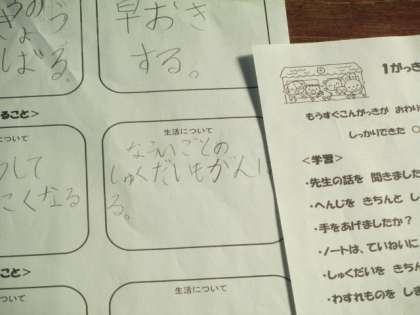 きょう
ばる。
早おき
する。
ること>
生活について
して
こくなる
生活について
ならいごとの
しゅくだいもがん
る。
こと>
ついて
生活について
1がっき
もうすぐこんがっきが おわり
しっかりできた ○
<学習>
・先生の話を 聞きました
・へんじを きちんと し
・手をあげましたか?
・ノートは、ていねいに
・しゅくだいを きちん
・わすれものを しま